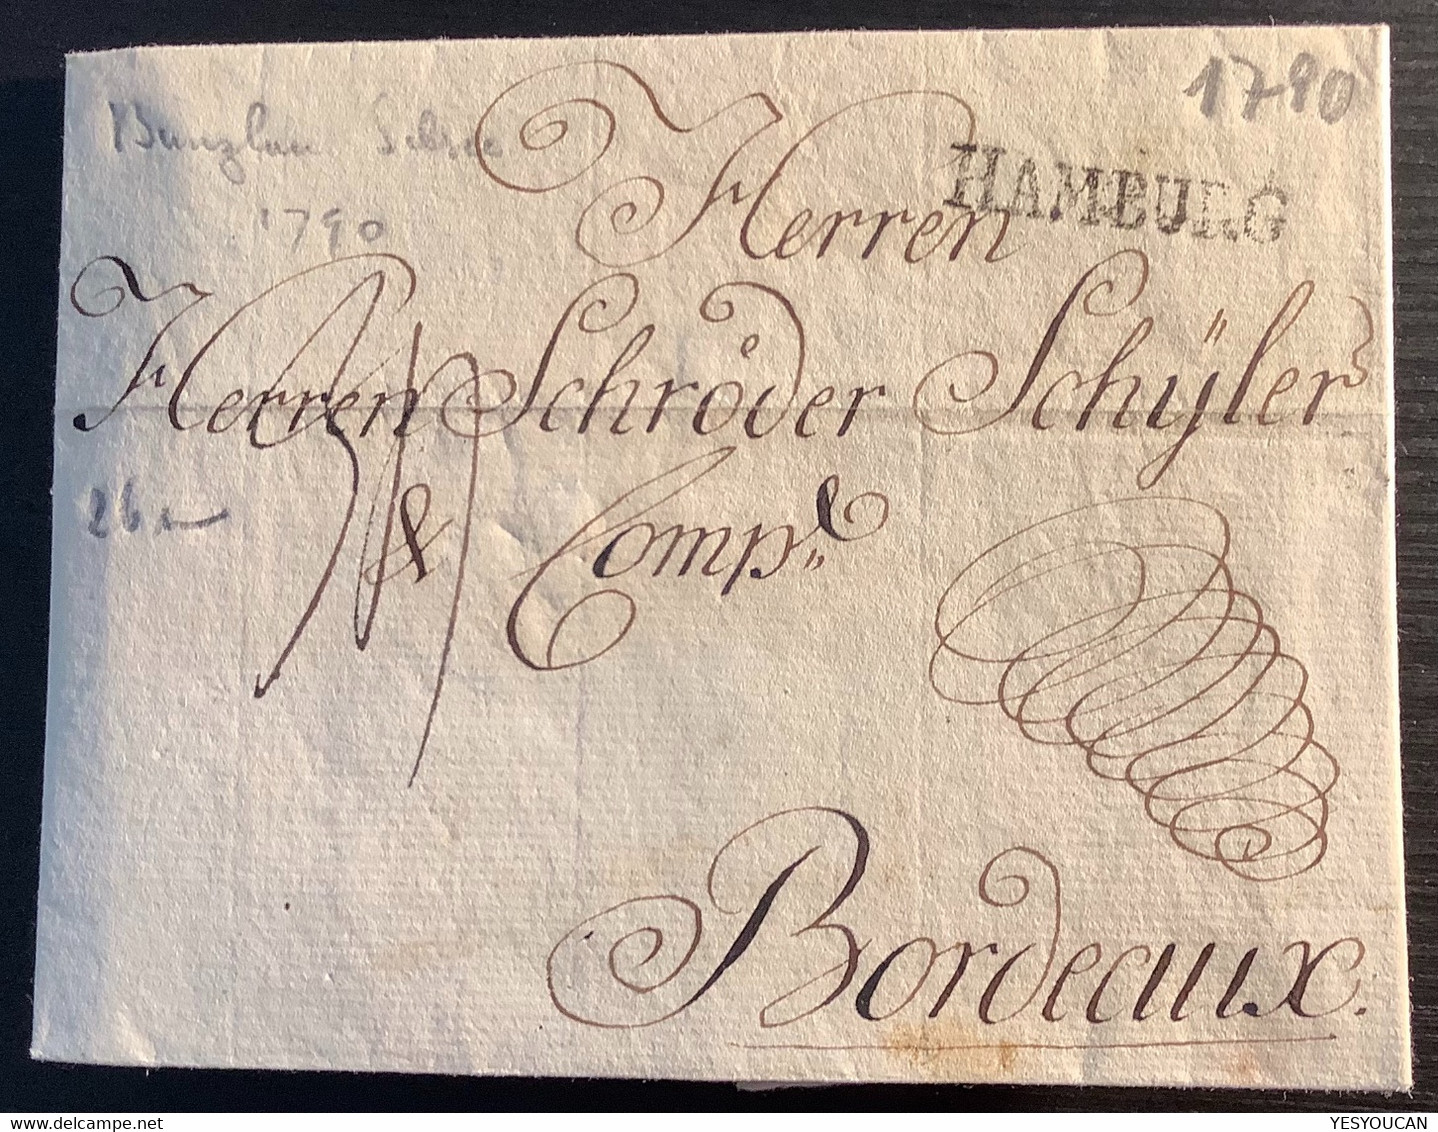 1790
Bunzlau
1790
HAMBURG
Herren
Herren Schröder Schÿler
& Comp.
Bordeaux.
YESYOUCAN